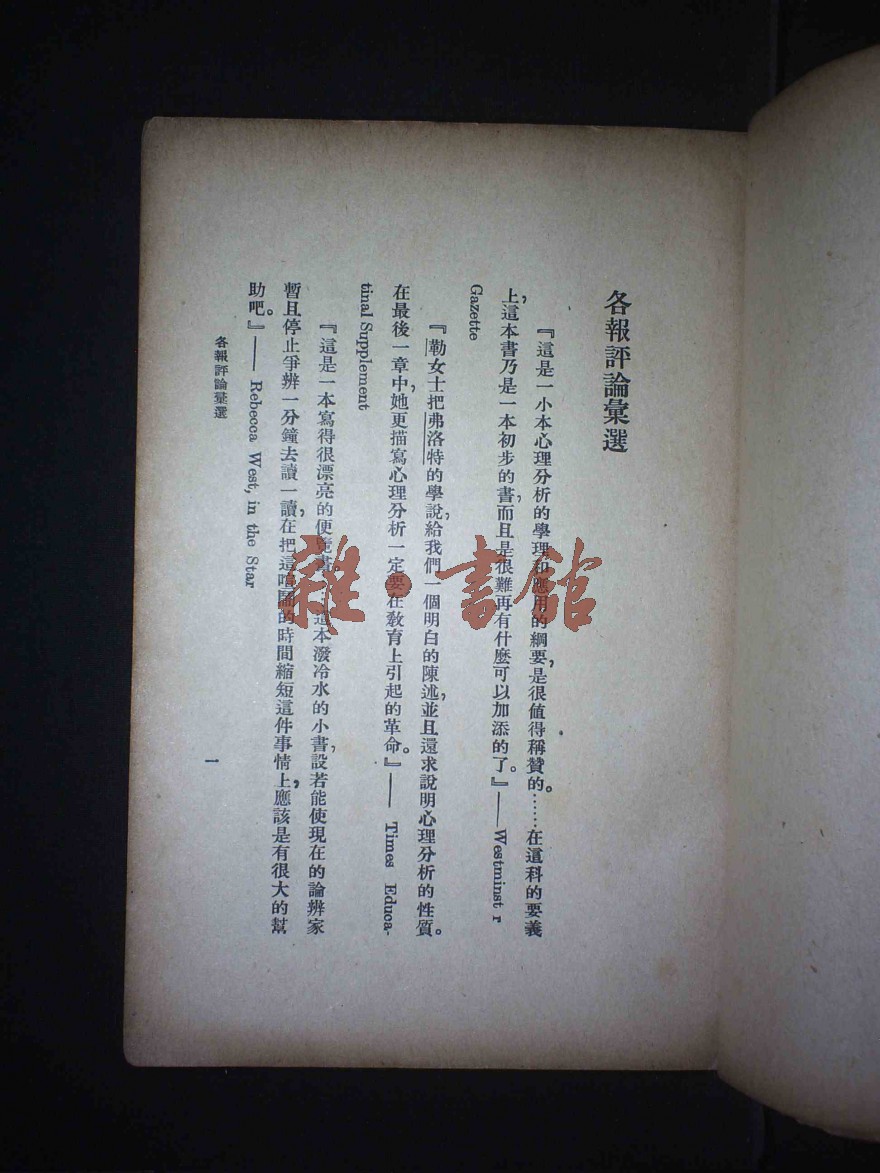 各報評論彙選
『這是一小本心理分析的學理和應用的綱要,是很值得稱贊的。……在這科的要義
上,這本書乃是一本初步的書,而且是很難再有什麼可以加添的了。』——Westminst r
Gazette
『勒女士把弗洛特的學說,給我們一個明白的陳述,並且還求說明心理分析的性質。
在最後一章中,她更描寫心理分析一定要在敎育上引起的革命。』—— Times Educa-
tinal Supplement
『這是一本寫得很漂亮的便覽書。…這本潑冷水的小書,設若能使現在的論辨家
暫且停止爭辨一分鐘去讀一讀,在把這喧鬧的時間縮短這件事情上,應該是有很大的幫
助吧。』—— Rebecca West, in the Star
各報評論彙選
一
雜·書館